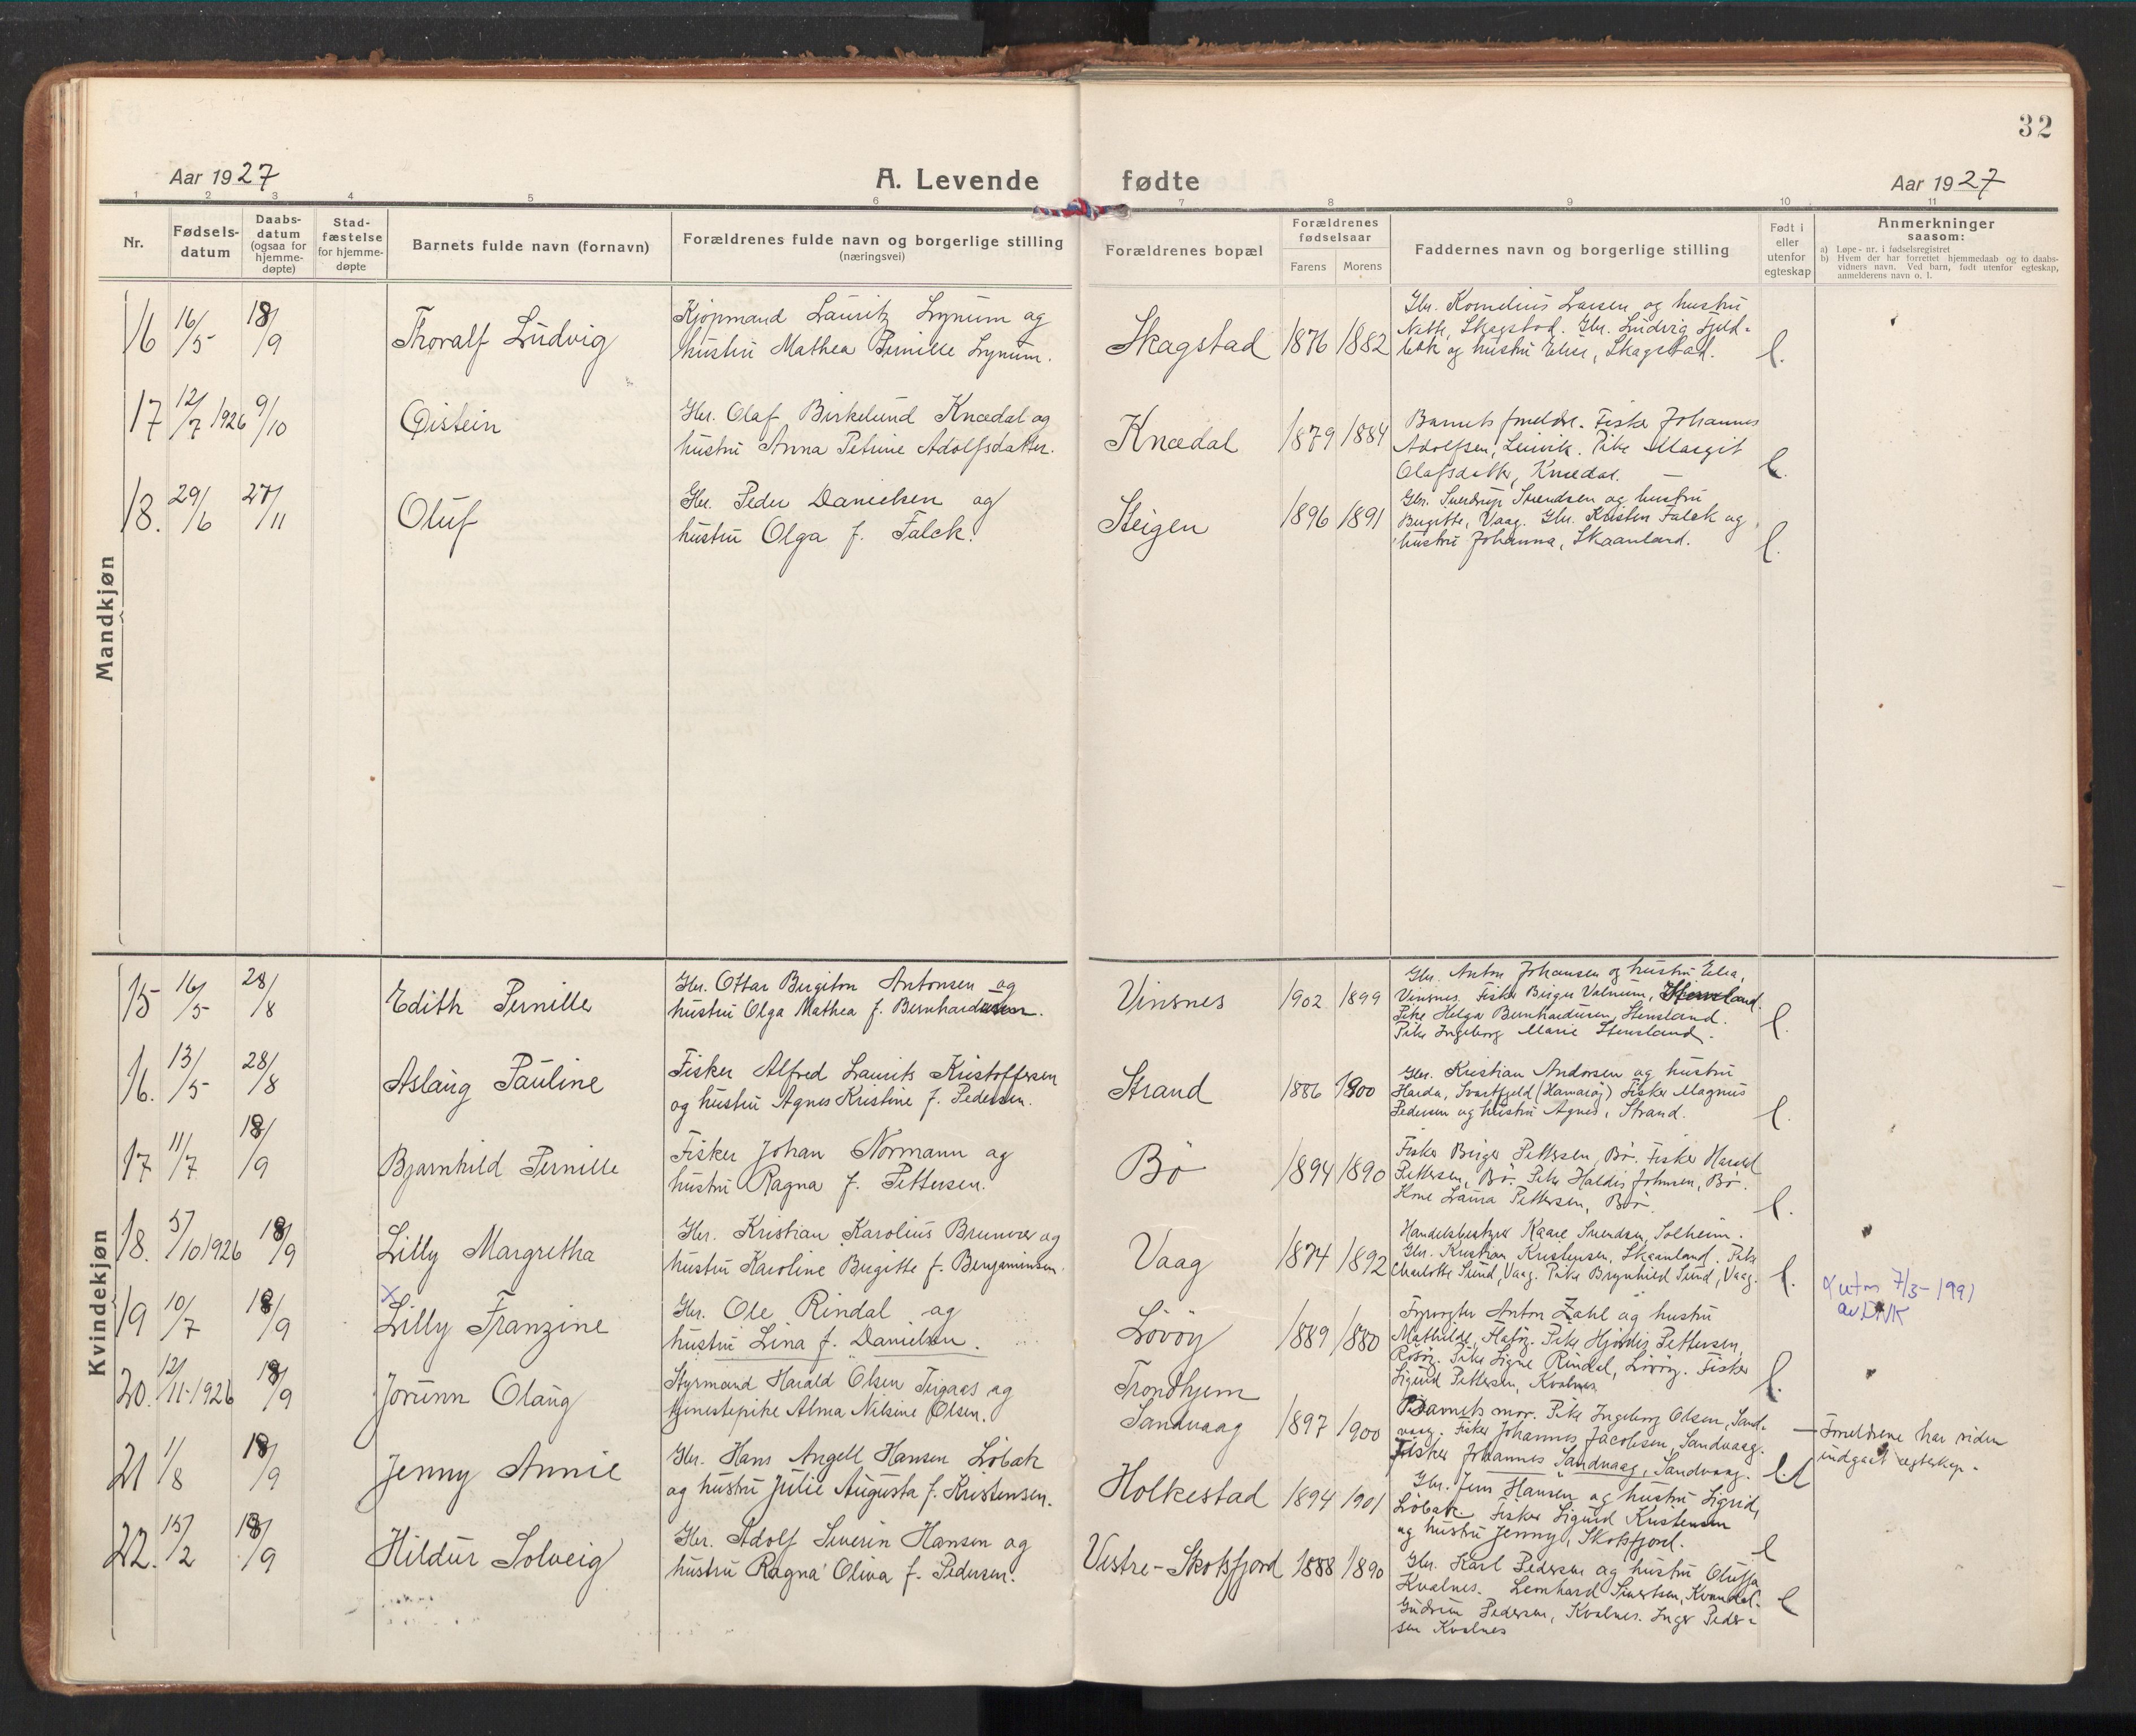 32
Aar 1927
A. Levende fødte
Aar 1927
1 2 3 4 5 6 7 8 9 10 11
Nr.
Fødsels-
datum
Daabs-
datum
(ogsaa for
hjemme-
døpte)
Stad-
fæstelse
for hjemme-
døpte
Barnets fulde navn (fornavn)
Forældrenes fulde navn og borgerlige stilling
(næringsvei)
Forældrenes bopæl
Forældrenes
fødselsaar
Farens Morens
Faddernes navn og borgerlige stilling
Født i
eller
utenfor
egteskap
Anmerkninger
saasom:
a) Løpe-nr. i fødselsregistret
b) Hvem der har forrettet hjemmedaab og to daabs-
vidners navn. Ved barn, født utenfor egteskap,
anmelderens navn o. l.
Mandkjøn
16 16/5 18/9 Thoralf Ludvig
Kjøpmand Lauritz Lynum og
hustru Mathea Pernille Lynum.
Skagstad 1876 1882
Gbr. Kornelius Larsen og hustru
Skagstad. Gbr. Ludvig Fjeld-
bakk og hustru Elise, Skagstad.
l.
17 12/7 1926 9/10 Øistein
Gbr. Olaf Birkelund Knædal og
hustru Anna Petrine Adolfsdatter.
Knædal 1879 1884
Barnets foreldre. Fisker Johannes
Adolfsen, Leinvik. Pike Margit
Olafsdatter, Knædal.
l.
18. 29/6 27/11 Oluf
Gbr. Peder Danielsen og
hustru Olga f. Falck.
Steigen 1896 1891
Gbr. Sverdrup Svendsen og hustru
Birgitte, Vaag. Gbr. Kristen Falck og
hustru Johanna, Skaanland.
l.
Kvindekjøn
15 16/5 28/8 Edith Pernille
Gbr. Ottar Birgiton Antonsen og
hustru Olga Mathea f. Bernhardussen.
Vinsnes 1902 1899
Gbr. Anton Johansen og hustru Elea,
Vinsnes. Fisker Birger Valnum, Stensland.
Pike Helga Bernhardusen, Stensland.
Pike Ingeborg Marie Stensland.
l.
16. 13/5 28/8 Aslaug Pauline
Fisker Alfred Laurits Kristoffersen
og hustru Agnes Kristine f. Pedersen.
Strand 1886 1900
Gbr. Kristian Andorsen og hustru
Harda, Svartfjeld (Hamarøy) Fisker Magnus
Pedersen og hustru Agnes, Strand.
l.
17 11/7 18/9 Bjarnhild Pernille
Fisker Johan Normann og
hustru Ragna f. Pettersen.
Bö 1894 1890
Fisker Birger Pettersen, Bö. Fisker Harald
Pettersen, Bö. Pike Haldis Johnsen, Bö.
Kone Laura Pettersen, Bö.
l.
18. 5/10 1926 18/9 Lilly Margretha
Gbr. Kristian Karolius Brunvær og
hustru Karoline Birgitte f. Benjaminsen.
Vaag 1874 1892
Handelsbestyrer Kaare Svendsen, Solheim.
Gbr. Kristian Kristensen, Skaanland. Pike
Charlotte Sund, Vaag. Pike Brynhild Sund, Vaag.
l.
x
19 10/7 18/9 Lilly Franzine
Gbr. Ole Rindal og
hustru Lina f. Danielsen.
Lövöy 1889 1880
Fyrvogter Anton Zahl og hustru
Mathilde, Flatöy. Pike Hjördis Pettersen,
Rösöy. Pike Signe Rindal, Lövöy. Fisker
Sigurd Pettersen, Kvalnes.
l.
utm 7/3-1991
av
20. 12/11-1926 18/9 Jorunn Olaug
Styrmand Harald Olsen Tisgaas og
tjenestepike Alma Nilsine Olsen.
Trondhjem
Sandvaag 1897 1900
Barnets mor. Pike Ingeborg Olsen, Sand-
vaag. Fisker Johannes Jacobsen, Sandvaag.
Fisker Johannes Sandvaag, Sandvaag.
— Foreldrene har siden
indgaat egteskap.
21 1/8 18/9 Jenny Annie
Gbr. Hans Angell Hansen Löbak
og hustru Julie Augusta f. Kristensen.
Holkestad 1894 1901
Gbr. Jens Hansen og hustru Sigrid,
Löbak. Fisker Sigurd Kristensen
og hustru Jenny, Skotsfjord.
l
22. 15/2 18/9 Hildur Solveig
Gbr. Adolf Severin Hansen og
hustru Ragna Oliva f. Pedersen.
Vestre-Skotsfjord 1888 1890
Gbr. Karl Pedersen og hustru Oluffa
Kvalnes. Leonhard Sivertsen, Kvandal.
Gudrun Pedersen, Kvalnes. Inger Peder-
sen Kvalnes
l